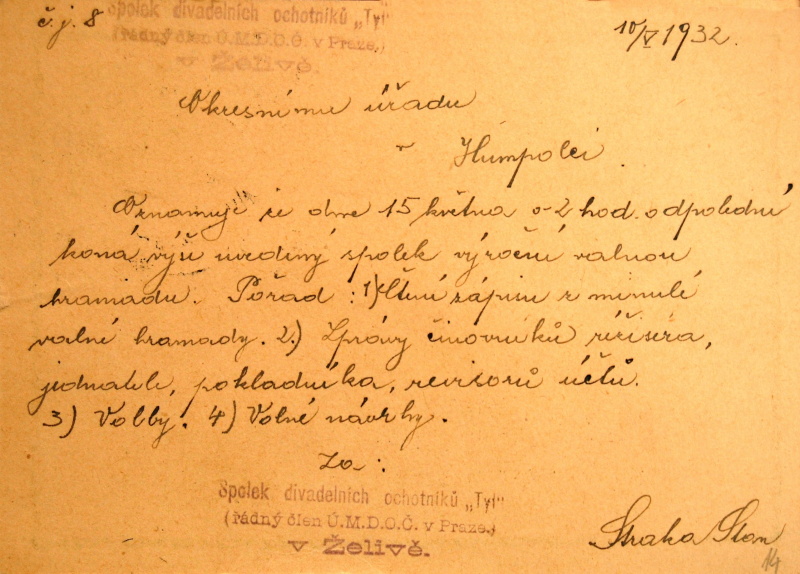 č. j. 8
Spolek divadelních ochotníků „Tyl"
(řádný člen Ú.M.D.O.Č. v Praze.)
v Želivě.
10/V 1932.
Okresnímu úřadu
v Humpolci.
Oznamuje se dne 15 května o 2 hod. odpolední
koná výši uvedený spolek výroční valnou
hramadu. Pořad: 1) Čtení zápisu z minulé
valné hramady. 2.) Zprávy činovníků režiséra,
jednatele, pokladníka, revisorů účtů.
3) Volby. 4) Volné návrhy.
Za:
Spolek divadelních ochotníků „Tyl"
(řádný člen Ú.M.D.O.Č. v Praze.)
v Želivě.
Straka Stan
14